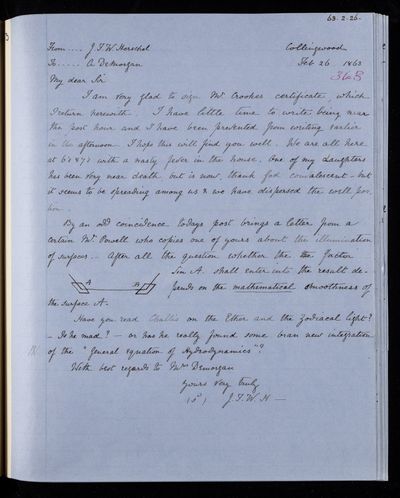 63.2.26.
From .... J.F.W. Herschel Collingwood
To ..... A DeMorgan Feb 26 1863
368
My dear Sir
I am very glad to sign Mr Crookes certificate which
I return herewith. I have little time to write being near
the post hour and I have been prevented from writing earlier
in the afternoon. I hope this will find you well. We are all here
at 6's & 7's with a nasty fever in the house. One of my daughters
has been very near death but is now, thank God convalescent - but
it seems to be spreading among us & we have dispersed the well por-
tion.
By an odd coincidence todays post brings a letter from a
certain Mr. Powell who copies one of yours about the illumination
of surfaces - After all the question whether the factor
Sin A. shall enter into the result de-
A B
pends on the mathematical smoothness of
the surface A.
Have you read Challis on the Ether and the Zodiacal light?
- Is he mad? - or has he really found some bran new integration
of the "General Equation of Hydrodynamics"?
With best regards to Mrs Demorgan
yours very truly
(sd) J.F.W. H -